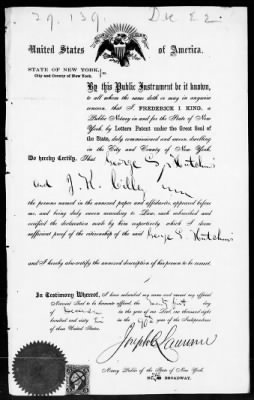 29,139. Dec 22
United States of America.
STATE OF NEW YORK,
City and County of New York.
By this Public Instrument be it known,
to all whom the same doth or may in anywise
concern, that I, FREDERICK I. KING, a
Public Notary in and for the State of New
York, by Letters Patent under the Great Seal of
the State, duly commissioned and sworn, dwelling
in the City and County of New York,
Do hereby Certify, That George S. Hutchins
and J. H.
the persons named in the annexed paper and affidavits, appeared before
me, and being duly sworn according to Law, each subscribed and
verified the declaration made by him respectively which I deem
sufficient proof of the citizenship of the said George S. Hutchins
and I hereby also certify the annexed description of his person to be correct.
In Testimony Whereof, I have subscribed my name and caused my official
Notarial Seal to be hereunto affixed, the twenty first day
of December in the year of our Lord, one thousand eight
hundred and sixty in the 90th year of the Independence
of these United States.
Joseph
Notary Public of the State of New York.
BROADWAY.